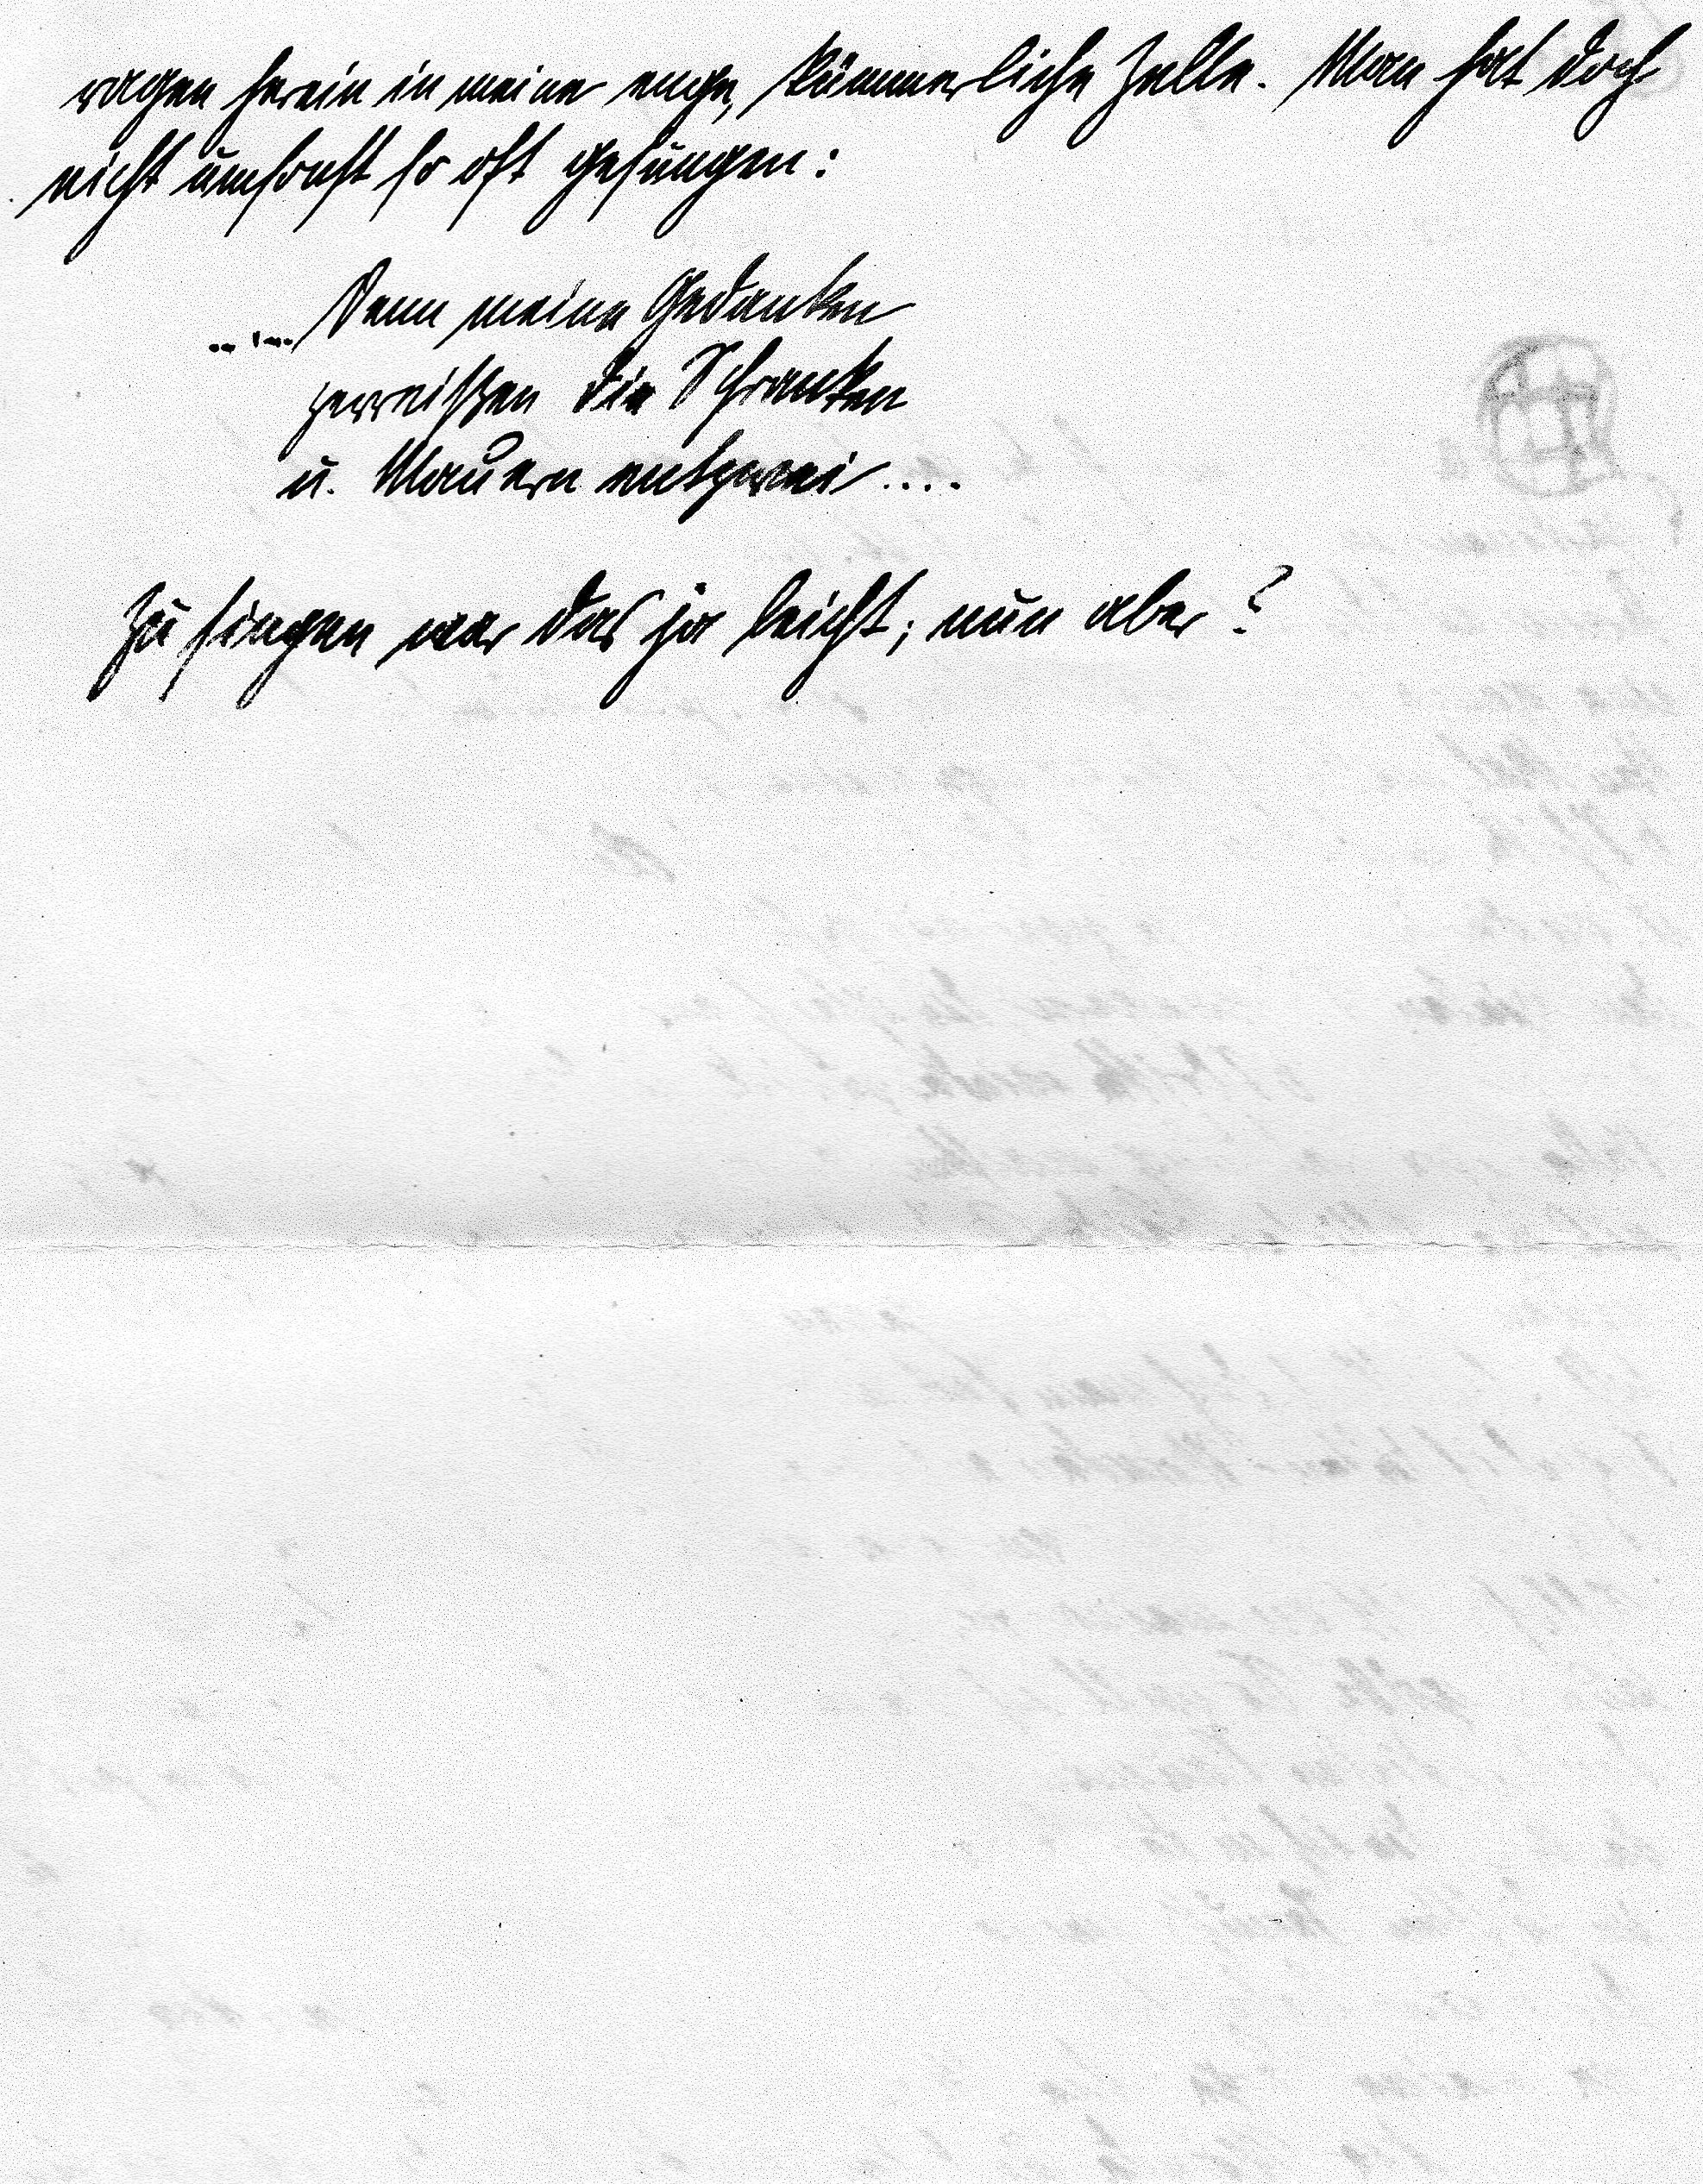 ragen herein in meine enge, kümmerliche Zelle. Man hat doch
nicht umsonst so oft gesungen:
..... Denn meine Gedanken
zerreißen die Schranken
u. Mauern entzwei ....
Zu singen war das ja leicht; nun aber?